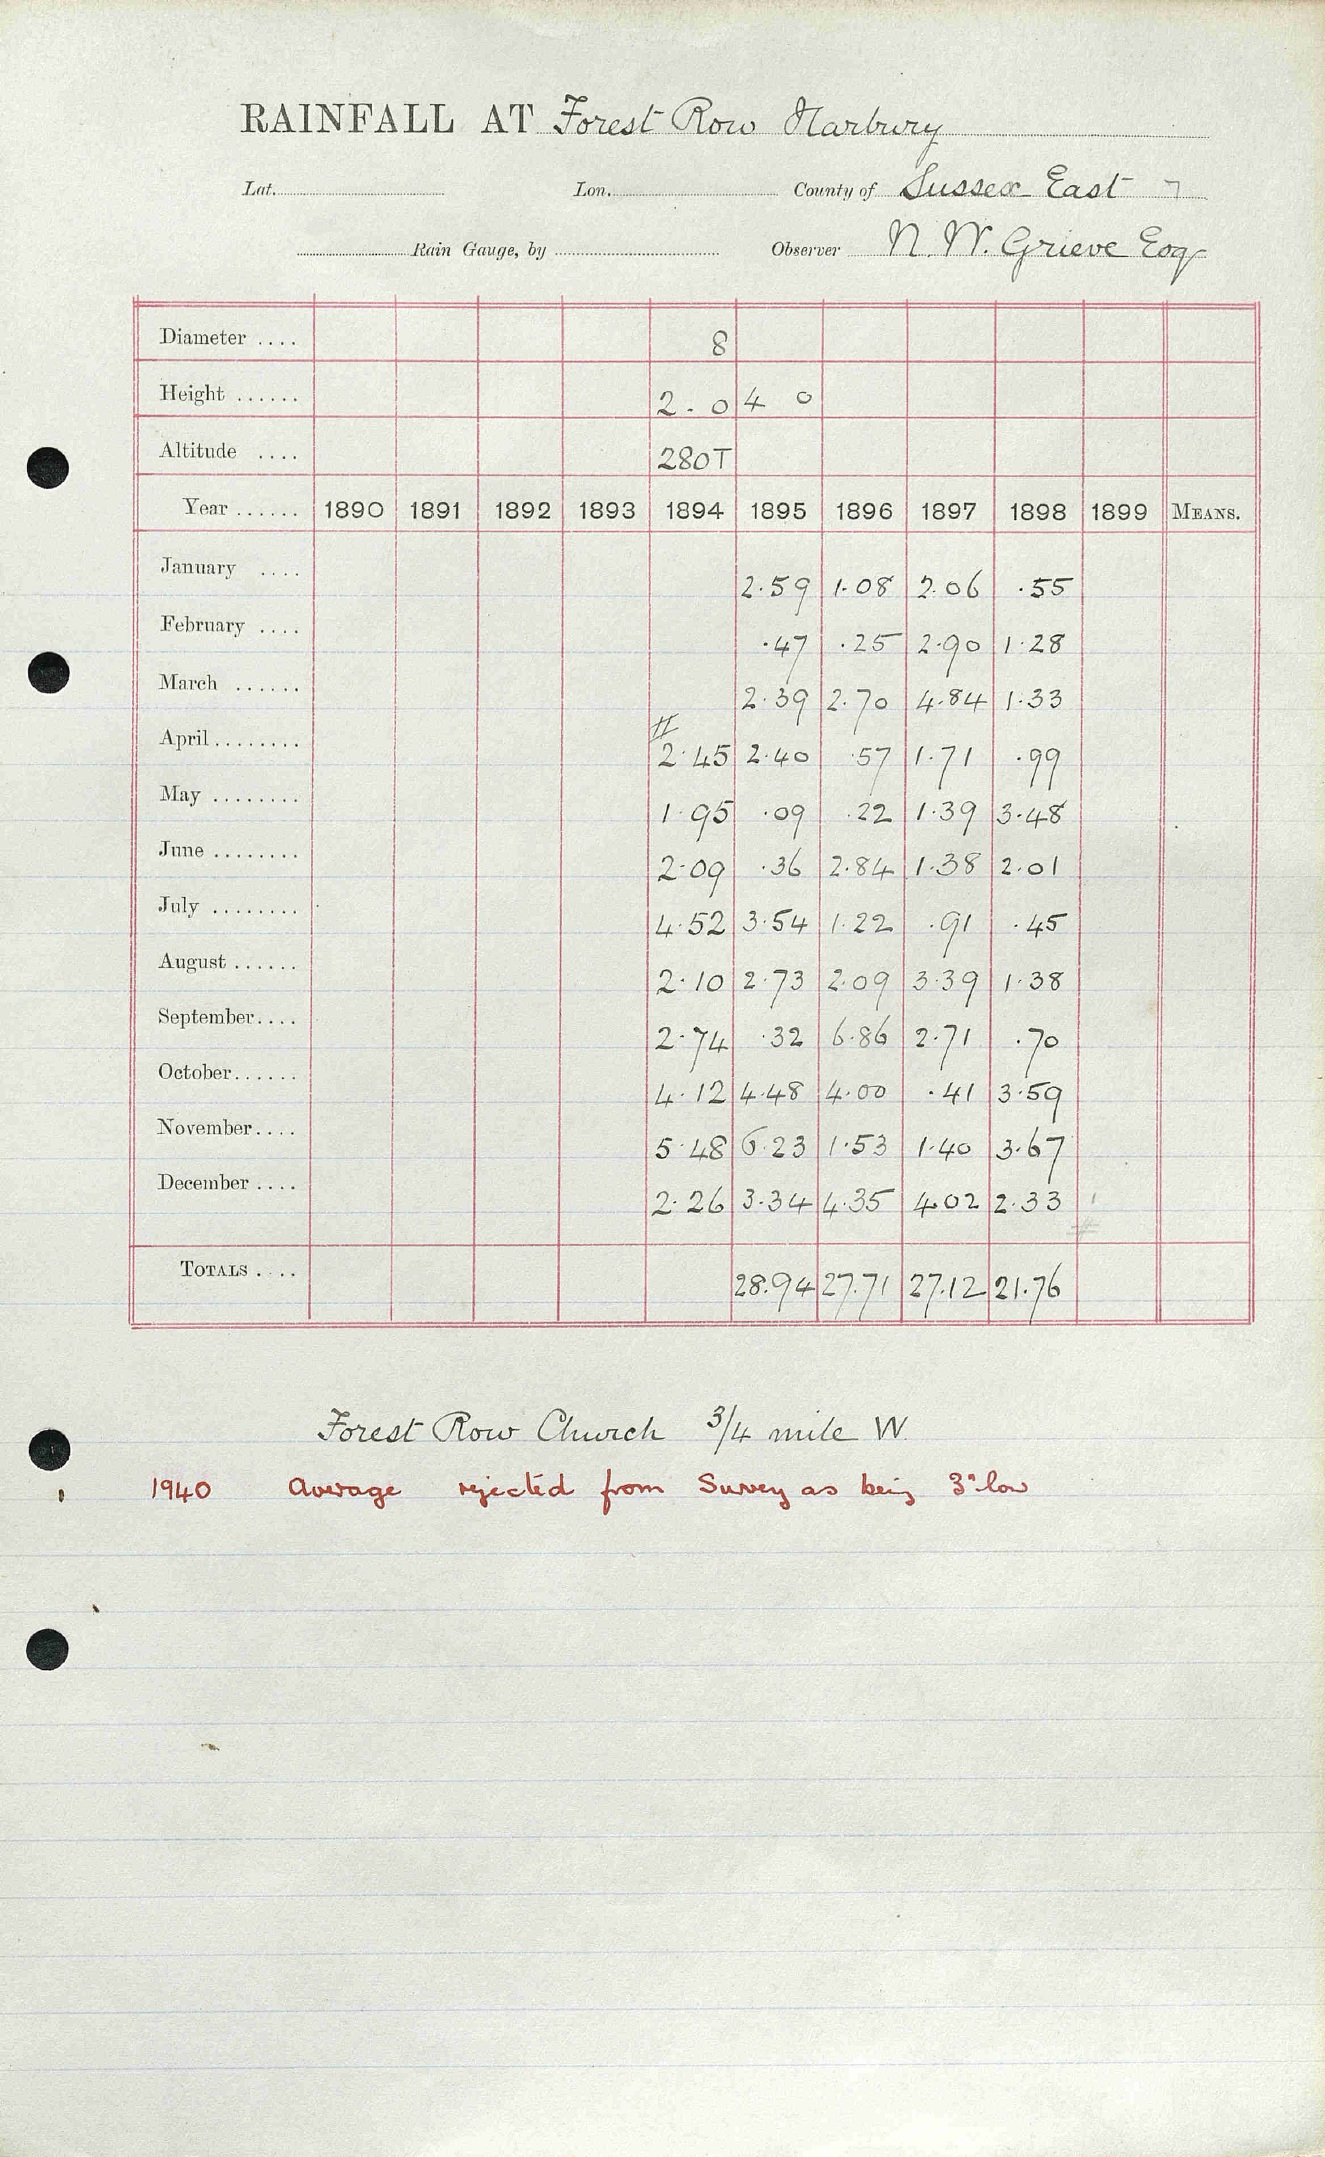 RAINFALL AT Forest Row Harbury
Lat. Lon. County of Sussex East 7
Rain Gauge, by Observer N. W. Grieve Esq
Diameter .... 8
Height ...... 2 - 0 4 0
Altitude .... 280T
Year ...... 1890 1891 1892 1893 1894 1895 1896 1897 1898 1899 MEANS.
January .... 2.59 1.08 2.06 .55
February .... .47 .25 2.90 1.28
March ...... 2.39 2.70 4.84 1.33
#
April ........ 2.45 2.40 .57 1.71 .99
May ........ 1.95 .09 .22 1.39 3.48
June ........ 2.09 .36 2.84 1.38 2.01
July ........ 4.52 3.54 1.22 .91 .45
August ...... 2.10 2.73 2.09 3.39 1.38
September.... 2.74 .32 6.86 2.71 .70
October...... 4.12 4.48 4.00 .41 3.59
November.... 5.48 6.23 1.53 1.40 3.67
December .... 2.26 3.34 4.35 4.02 2.33
#
TOTALS .... 28.94 27.71 27.12 21.76
Forest Row Church 3/4 mile W
1940 Average rejected from Survey as being 3" low